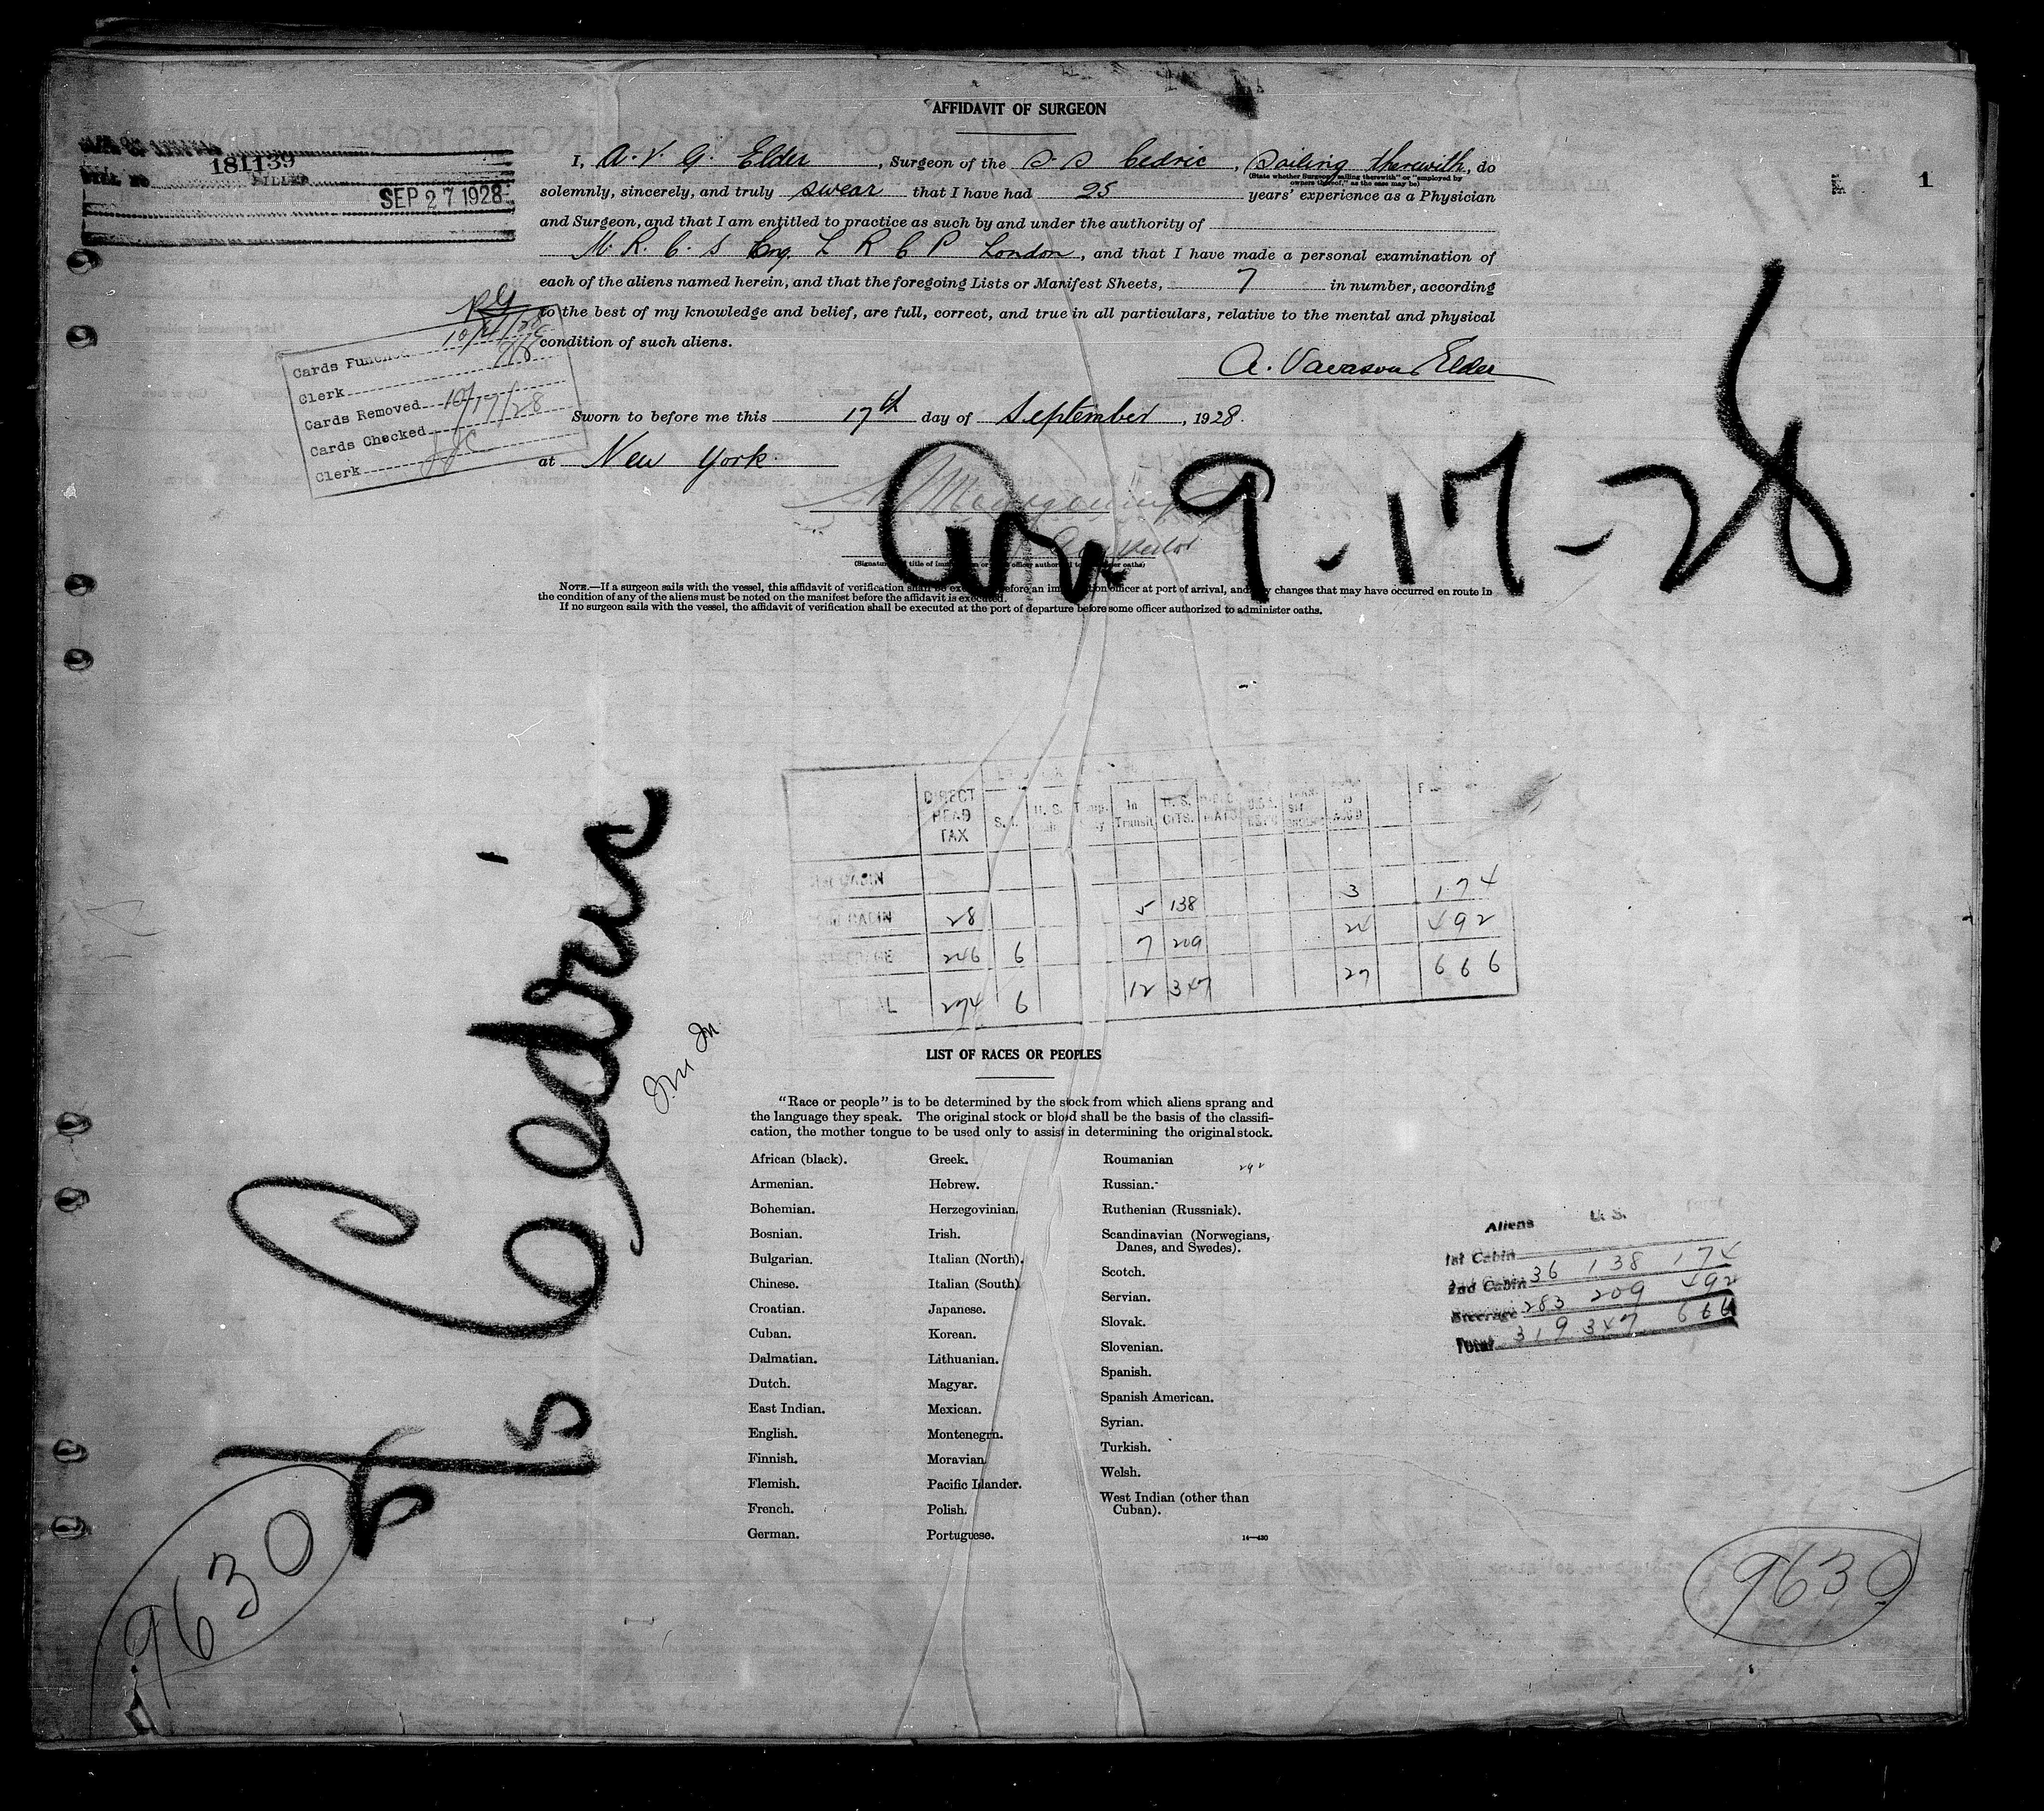 AFFIDAVIT OF SURGEON
181139
FILLED
SEP 27 1928
1
I, A. V. G. Elder, Surgeon of the S. S Cedric, Sailing therewith, do
(State whether Surgeon "sailing therewith" or "employed by
owners thereof," as the case may be)
solemnly, sincerely, and truly swear that I have had 25 years' experience as a Physician
and Surgeon, and that I am entitled to practice as such by and under the authority of
M. R. C. S Eng. L R C P London, and that I have made a personal examination of
each of the aliens named herein, and that the foregoing Lists or Manifest Sheets, 7 in number, according
to the best of my knowledge and belief, are full, correct, and true in all particulars, relative to the mental and physical
condition of such aliens.
A. Vavasour Elder
Sworn to before me this 17th day of September, 1928.
at New York.
Cards Punched
Clerk
Cards Removed 10/17/28
Cards Checked
Clerk JJC
Arr. 9-17-28
NOTE.—If a surgeon sails with the vessel, this affidavit of verification shall be executed before an immigration officer at port of arrival, and any changes that may have occurred en route in
the condition of any of the aliens must be noted on the manifest before the affidavit is executed.
If no surgeon sails with the vessel, the affidavit of verification shall be executed at the port of departure before some officer authorized to administer oaths.
S/S Cedric
DIRECT HEAD TAX S.I. U. S. In Transit U. S. CITS.
CABIN
CABIN 28 5 138 3 174
246 6 7 209 24 492
TOTAL 274 6 12 347 27 666
LIST OF RACES OR PEOPLES
"Race or people" is to be determined by the stock from which aliens sprang and
the language they speak. The original stock or blood shall be the basis of the classifi-
cation, the mother tongue to be used only to assist in determining the original stock.
African (black).
Armenian.
Bohemian.
Bosnian.
Bulgarian.
Chinese.
Croatian.
Cuban.
Dalmatian.
Dutch.
East Indian.
English.
Finnish.
Flemish.
French.
German.
Greek.
Hebrew.
Herzegovinian.
Irish.
Italian (North).
Italian (South)
Japanese.
Korean.
Lithuanian.
Magyar.
Mexican.
Montenegrin.
Moravian.
Pacific Islander.
Polish.
Portuguese.
Roumanian
Russian.
Ruthenian (Russniak).
Scandinavian (Norwegians,
Danes, and Swedes).
Scotch.
Servian.
Slovak.
Slovenian.
Spanish.
Spanish American.
Syrian.
Turkish.
Welsh.
West Indian (other than
Cuban).
14—430
292
Aliens U. S.
1st Cabin
2nd Cabin 36 138 174
Steerage 283 209 492
Total 319 347 666
9630
9630